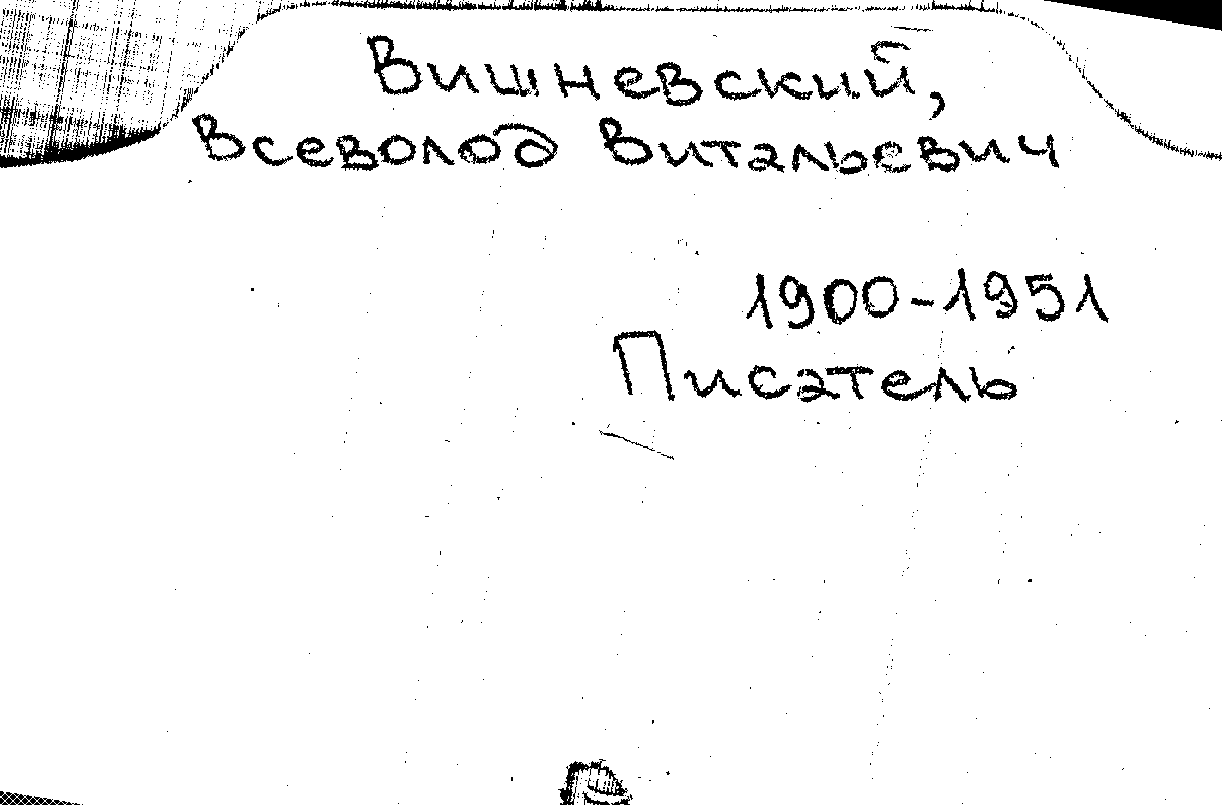 Вишневский,
Всеволод Витальевич
1900-1951
Писатель